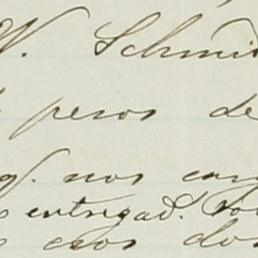 W. Schmid
pesos de
g. nos
entregad.
esos dos